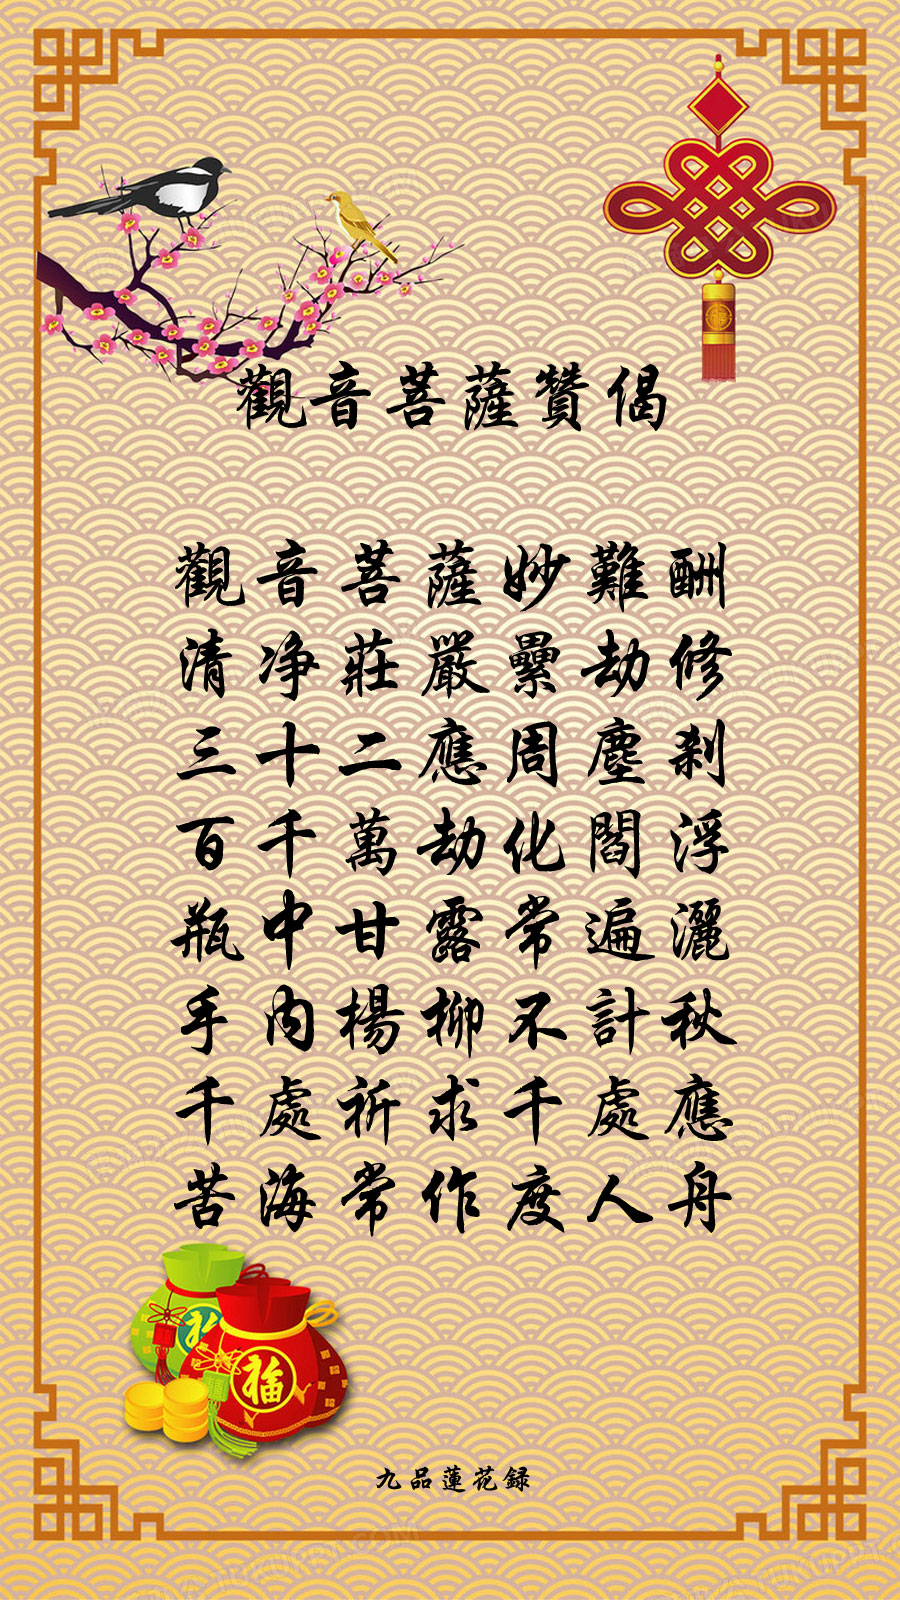 觀音菩薩贊偈
觀音菩薩妙難酬
清净莊嚴纍劫修
三十二應周塵刹
百千萬劫化閻浮
瓶中甘露常遍灑
手内楊柳不計秋
千處祈求千處應
苦海常作度人舟
福
九品蓮花録